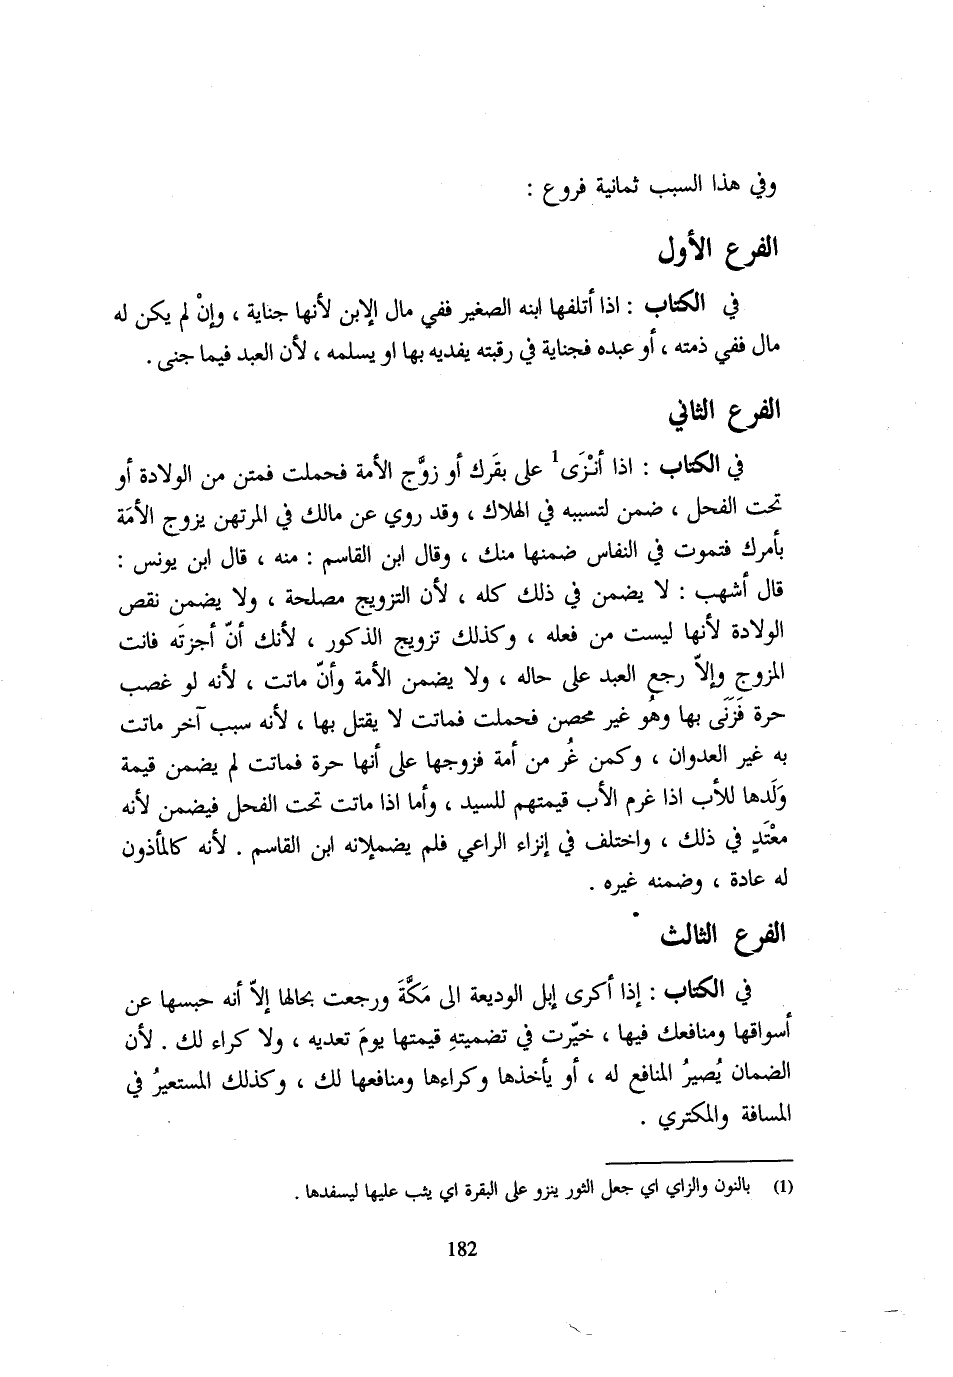 وفي هذا السبب ثمانية فروع :
الفرع الأول
في الكتاب : اذا أتلفها ابنه الصغير ففي مال الإبن لأنها جناية ، وإنْ لم يكن له
مال ففي ذمته ، أو عبده فجناية في رقبته يفديه بها او يسلمه ، لأن العبد فيما جنى .
الفرع الثاني
في الكتاب : اذا أنْزَى1 على بقَرك أو زوَّج الأمة فحملت فمتن من الولادة أو
تحت الفحل ، ضمن لتسببه في الهلاك ، وقد روي عن مالك في المرتهن يزوج الأمَة
بأمرك فتموت في النفاس ضمنها منك ، وقال ابن القاسم : منه ، قال ابن يونس :
قال أشهب : لا يضمن في ذلك كله ، لأن التزويج مصلحة ، ولا يضمن نقص
الولادة لأنها ليست من فعله ، وكذلك تزويج الذكور ، لأنك أنّ أجزتَه فانت
المزوج وإلاّ رجع العبد على حاله ، ولا يضمن الأمة وأنّ ماتت ، لأنه لو غصب
حرة فَزَنَى بها وهُو غير محصن فحملت فماتت لا يقتل بها ، لأنه سبب آخر ماتت
به غير العدوان ، وكمن غُر من أمة فزوجها على أنها حرة فماتت لم يضمن قيمة
وَلَدها للأب اذا غرم الأب قيمتهم للسيد ، وأما اذا ماتت تحت الفحل فيضمن لأنه
معْتَدٍ في ذلك ، واختلف في إنزاء الراعي فلم يضملانه ابن القاسم . لأنه كالمأذون
له عادة ، وضمنه غيره .
الفرع الثالث
في الكتاب : إذا أكرى إبل الوديعة الى مَكَّةَ ورجعت بحالها إلاّ أنه حبسها عن
أسواقها ومنافعك فيها ، خيّرت في تضميتهِ قيمتها يومَ تعديه ، ولا كراء لك . لأن
الضمان يُصيرُ المنافع له ، أو يأخذها وكراءها ومنافعها لك ، وكذلك المستعيرُ في
المسافة والمكتري .
(1) بالنون والزاي اي جعل الثور ينزو على البقرة اي يثب عليها ليسفدها .
182